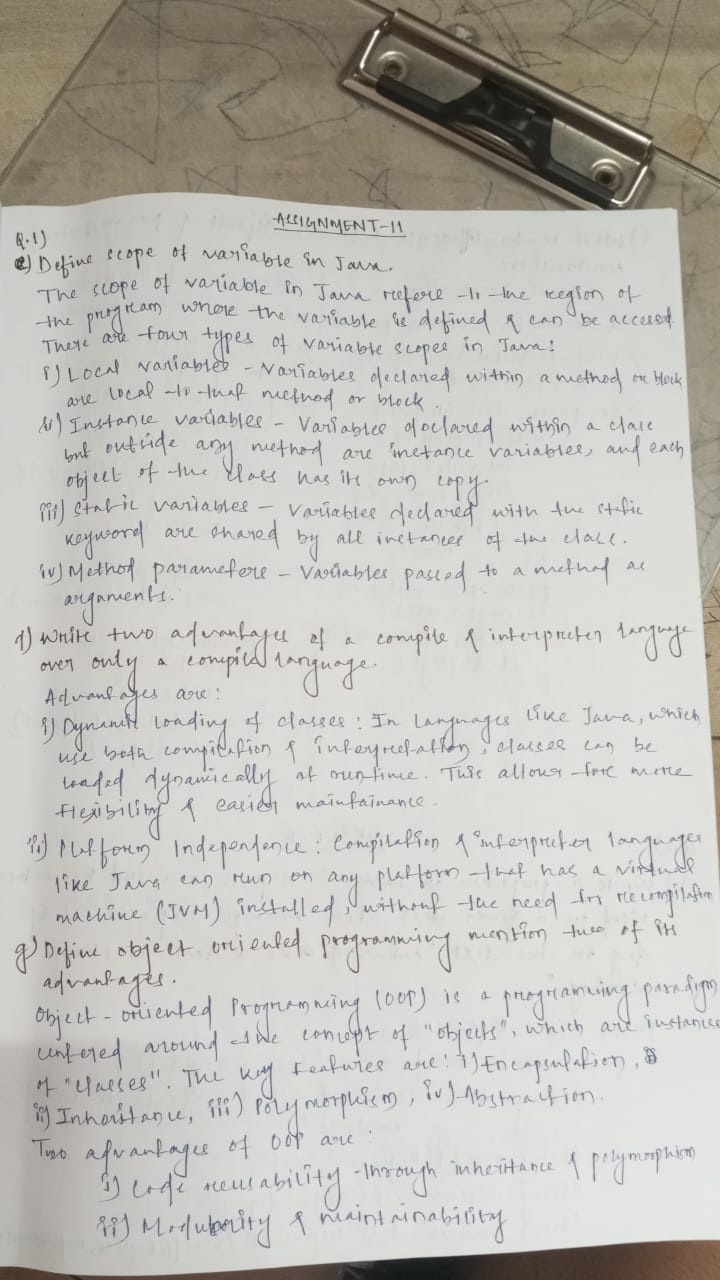 ASSIGNMENT-11
Q.1)
e) Define scope of variable in Java.
The scope of variable in Java refers to the region of
the program where the variable is defined & can be accessed.
There are four types of variable scopes in Java:
i) Local variables - Variables declared within a method or block
are local to that method or block.
ii) Instance variables - Variables declared within a class
but outside any method are instance variables, and each
object of the class has its own copy.
iii) Static variables - Variables declared with the static
keyword are shared by all instances of the class.
iv) Method parameters - Variables passed to a method as
arguments.
f) Write two advantages of a compile & interpreter language
over only a compiled language.
Advantages are:
i) Dynamic Loading of classes: In Languages like Java, which
use both compilation & interpretation, classes can be
loaded dynamically at runtime. This allows for more
flexibility & easier maintainance.
ii) Platform Independence: Compilation & interpreter languages
like Java can run on any platform that has a virtual
machine (JVM) installed, without the need for recompilation
g) Define object oriented programming mention two of its
advantages.
Object-oriented Programming (OOP) is a programming paradigm
centered around the concept of "objects", which are instances
of "classes". The key features are: i) Encapsulation,
ii) Inheritance, iii) Polymorphism, iv) Abstraction.
Two advantages of OOP are:
i) Code reusability - through inheritance & polymorphism
ii) Modularity & maintainability